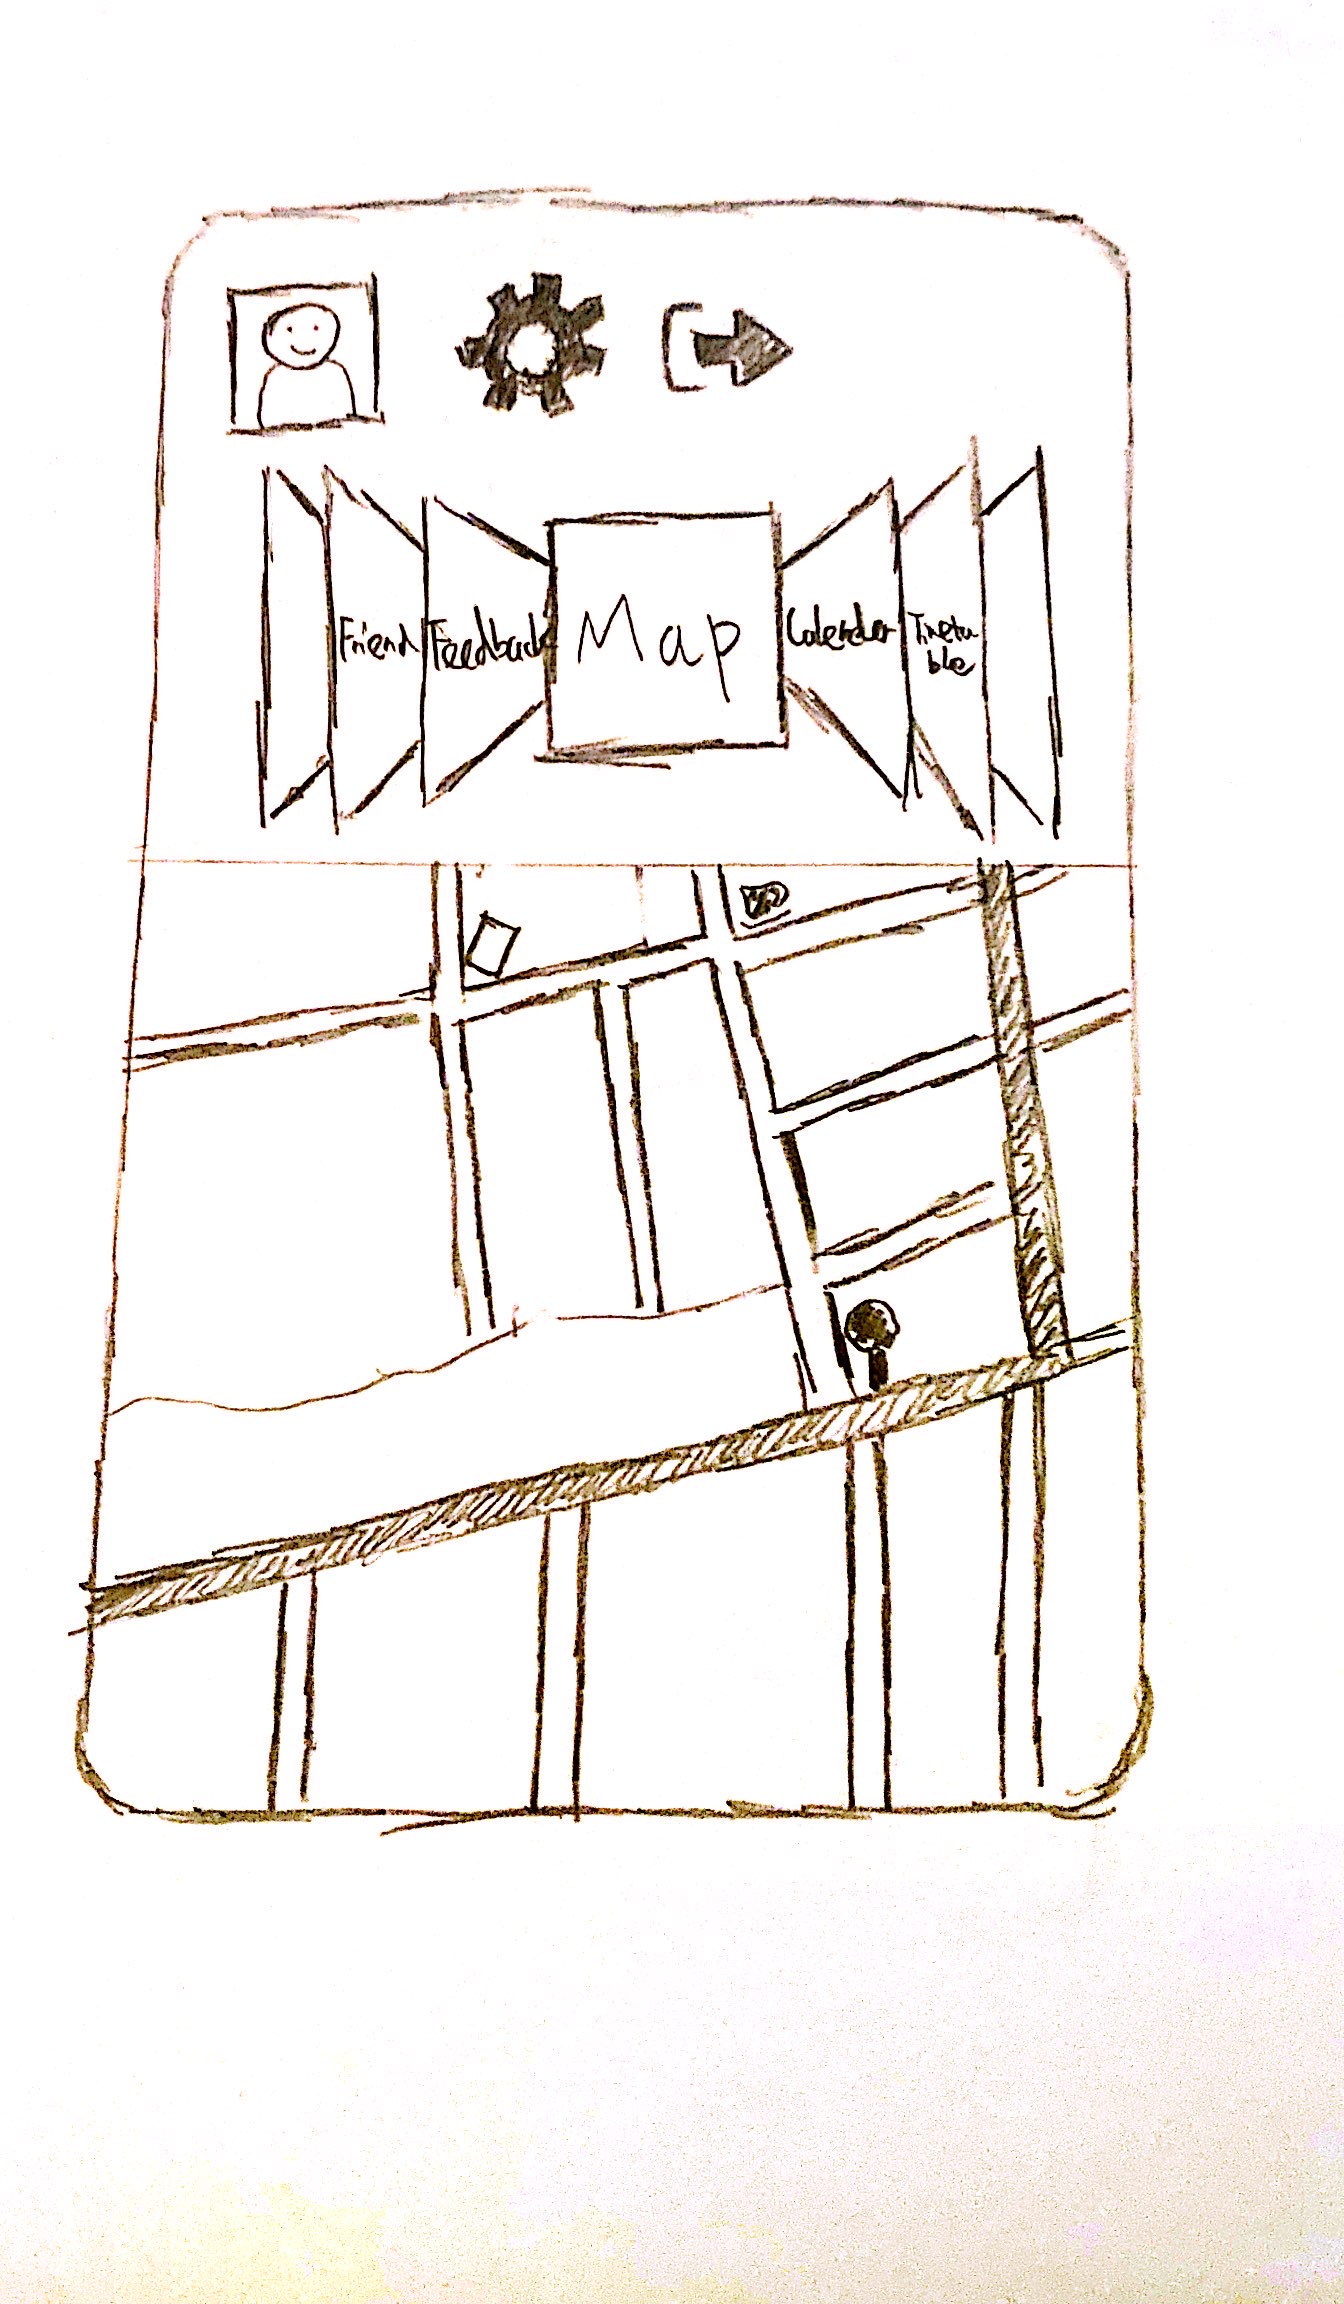 Friend
Feedback
Map
Calender
Timeta
ble